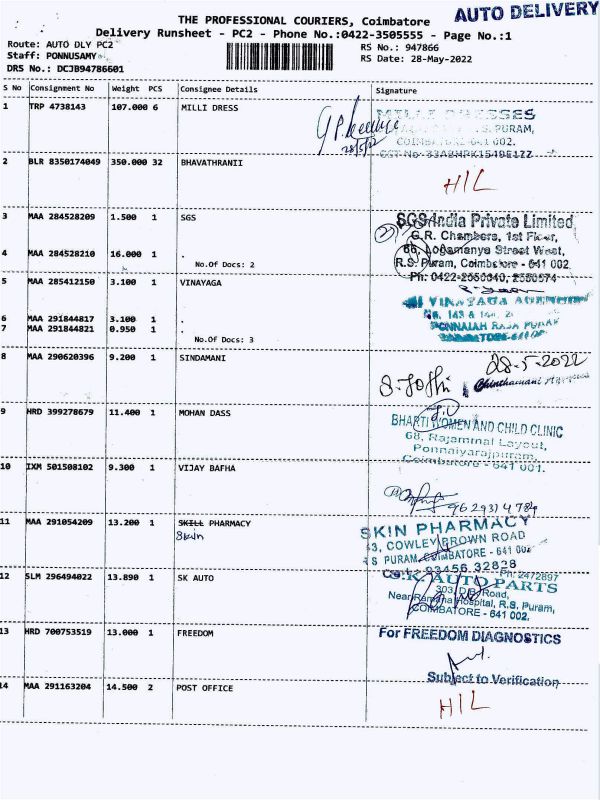 AUTO DELIVERY
THE PROFESSIONAL COURIERS, Coimbatore
Delivery Runsheet - PC2 - Phone No.:0422-3505555 - Page No.:1
Route: AUTO DLY PC2
RS No.: 947866
Staff: PONNUSAMY
RS Date: 28-May-2022
DRS No.: DCJB94786601
S No Consignment No Weight PCS Consignee Details Signature
1 TRP 4738143 107.000 6 MILLI DRESS
MILLI DRESSES
S. PURAM,
COIMBATORE-641 002.
28/5/22
2 BLR 8350174049 350.000 32 BHAVATHRANII
H/L
3 MAA 284528209 1.500 1 SGS
SGS India Private Limited
G.R. Chambers, 1st Floor,
4 MAA 284528210 16.000 1 .
66, Logamanya Street West,
No.Of Docs: 2
R.S. Puram, Coimbatore - 641 002.
Ph: 0422-2550574
5 MAA 285412150 3.100 1 VINAYAGA
VINAYAGA
6 MAA 291844817 3.100 1 .
No. 143 & 144,
7 MAA 291844821 0.950 1 .
PONNAIAH RAJA PURAM
No.Of Docs: 3
COIMBATORE
8 MAA 290620396 9.200 1 SINDAMANI
28-5-2022
S. Jothi
Chinthamani
9 HRD 399278679 11.400 1 MOHAN DASS
BHARTI WOMEN AND CHILD CLINIC
68, Rajammal Layout,
Ponnaiyarajpuram,
Coimbatore - 641 001.
10 IXM 501508102 9.300 1 VIJAY BAFHA
9629314784
11 MAA 291054209 13.200 1 SKILL PHARMACY
Skin
SKIN PHARMACY
43, COWLEY BROWN ROAD
R S PURAM, COIMBATORE - 641 002
93456 32828
12 SLM 296494022 13.890 1 SK AUTO
Ph: 2472897
S.K. AUTO PARTS
303, D.B. Road,
Near Hospital, R.S. Puram,
COIMBATORE - 641 002.
13 HRD 700753519 13.000 1 FREEDOM
For FREEDOM DIAGNOSTICS
Subject to Verification
14 MAA 291163204 14.500 2 POST OFFICE
H/L